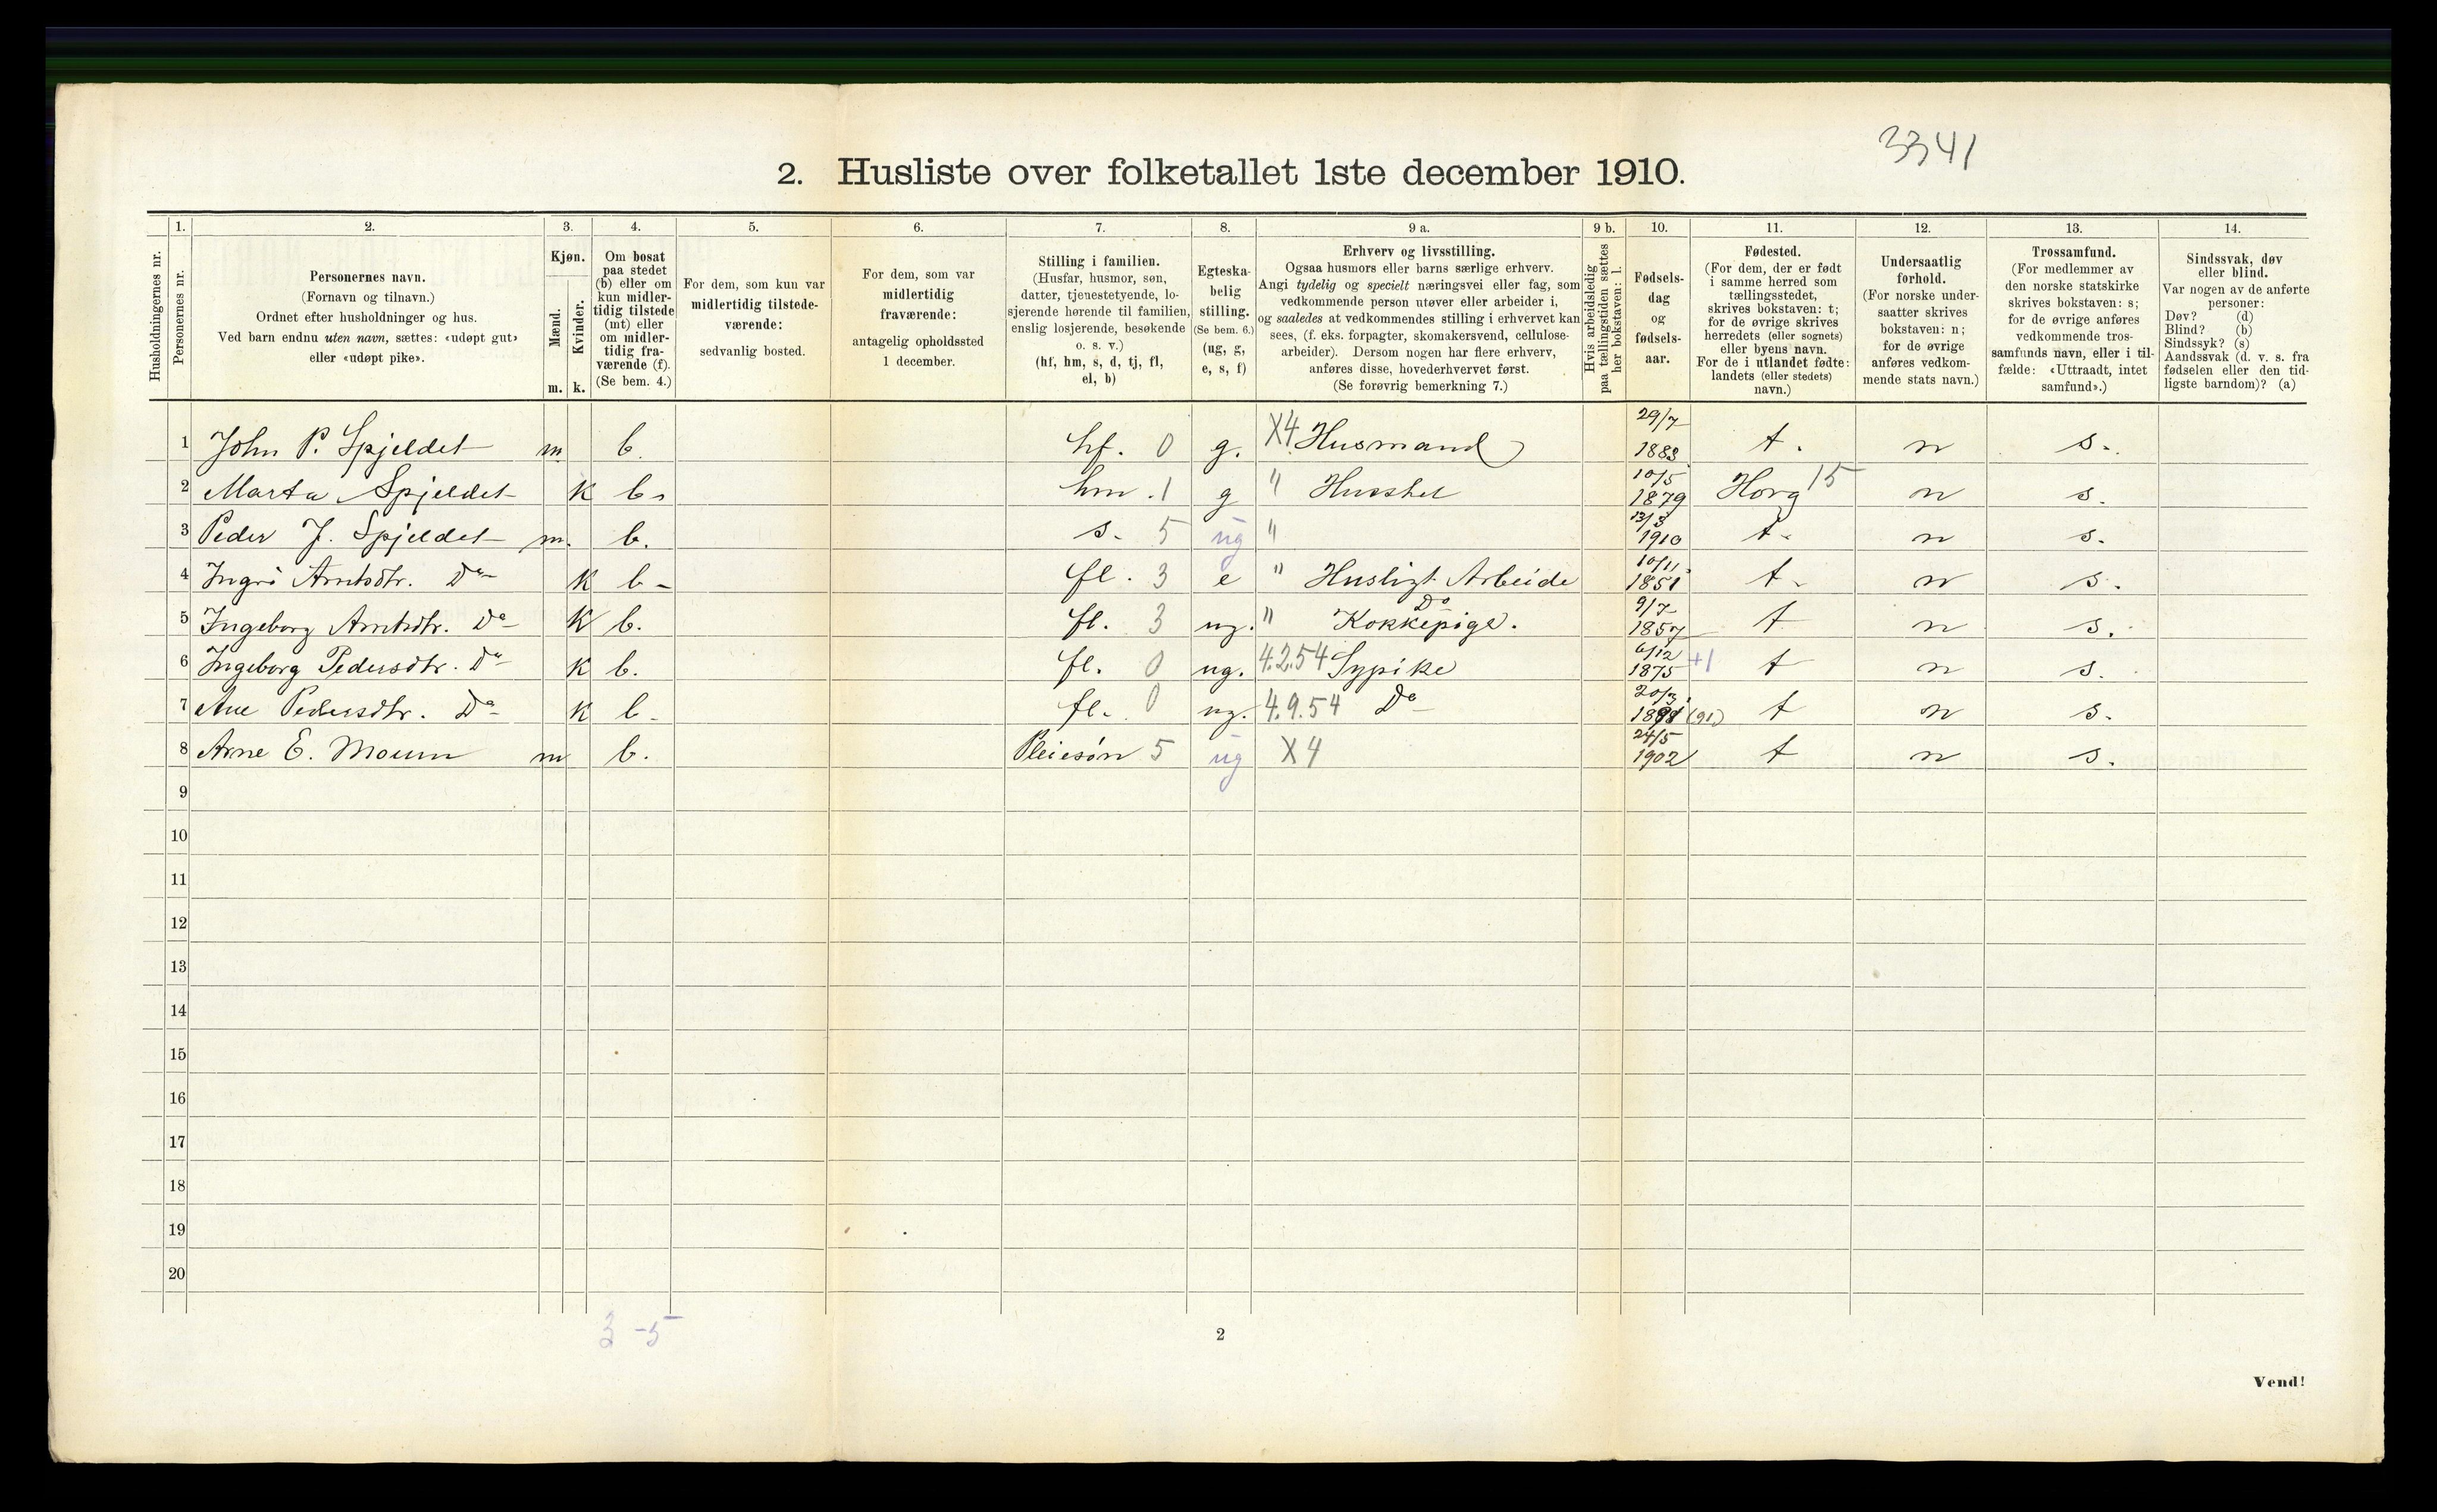 3341
2. Husliste over folketallet 1ste december 1910.
Husholdningernes nr.
1.
Personernes nr.
2.
Personernes navn.
(Fornavn og tilnavn.)
Ordnet efter husholdninger og hus.
Ved barn endnu uten navn, sættes: «udøpt gut»
eller «udøpt pike».
3.
Kjøn.
Mænd.
Kvinder.
m. k.
4.
Om bosat
paa stedet
(b) eller om
kun midler-
tidig tilstede
(mt) eller
om midler-
tidig fra-
værende (f).
(Se bem. 4.)
5.
For dem, som kun var
midlertidig tilstede-
værende:
sedvanlig bosted.
6.
For dem, som var
midlertidig
fraværende:
antagelig opholdssted
1 december.
7.
Stilling i familien.
(Husfar, husmor, søn,
datter, tjenestetyende, lo-
sjerende hørende til familien,
enslig losjerende, besøkende
o. s. v.)
(hf, hm, s, d, tj, fl,
el, b)
8.
Egteska-
belig
stilling.
(Se bem. 6.)
(ug, g,
e, s, f)
9 a.
Erhverv og livsstilling.
Ogsaa husmors eller barns særlige erhverv.
Angi tydelig og specielt næringsvei eller fag, som
vedkommende person utøver eller arbeider i,
og saaledes at vedkommendes stilling i erhvervet kan
sees, (f. eks. forpagter, skomakersvend, cellulose-
arbeider). Dersom nogen har flere erhverv,
anføres disse, hovederhvervet først.
(Se forøvrig bemerkning 7.)
9 b.
Hvis arbeidsledig
paa tællingstiden sættes
her bokstaven: l.
10.
Fødsels-
dag
og
fødsels-
aar.
11.
Fødested.
(For dem, der er født
i samme herred som
tællingsstedet,
skrives bokstaven: t;
for de øvrige skrives
herredets (eller sognets)
eller byens navn.
For de i utlandet fødte:
landets (eller stedets)
navn.)
12.
Undersaatlig
forhold.
(For norske under-
saatter skrives
bokstaven: n;
for de øvrige
anføres vedkom-
mende stats navn.)
13.
Trossamfund.
(For medlemmer av
den norske statskirke
skrives bokstaven: s;
for de øvrige anføres
vedkommende tros-
samfunds navn, eller i til-
fælde: «Uttraadt, intet
samfund».)
14.
Sindssvak, døv
eller blind.
Var nogen av de anførte
personer:
Døv? (d)
Blind? (b)
Sindssyk? (s)
Aandssvak (d. v. s. fra
fødselen eller den tid-
ligste barndom)? (a)
1 John P. Spjeldet m b. hf. 0 g. X4 Husmand 29/7 1883 t. n s.
2 Marta Spjeldet k b. hm. 1 g " Husstel 10/5 1879 Horg 15 n s.
3 Peder J. Spjeldet m. b. s. 5 ug " 1910 t. n s.
4 Ingri Arntsdtr. Do k b- fl. 3 e " Husligt Arbeide 10/11 1851 t. n s.
5 Ingeborg Arntsdtr. Do k b. fl. 3 ug. " Do Kokkepige. 9/7 1857 t n s.
6 Ingeborg Pedersdtr. Do k b. fl. 0 ug. 4.2.54 Sypike 6/12 1875 +1 t n s.
7 Ane Pedersdtr. Do k b- fl. 0 ug. 4.9.54 Do 20/3 (91) t n s.
8 Arne E. Moum m b. Pleiesøn 5 ug X4 24/5 1902 t n s.
9
10
11
12
13
14
15
16
17
18
19
20
3 -5
2
Vend!